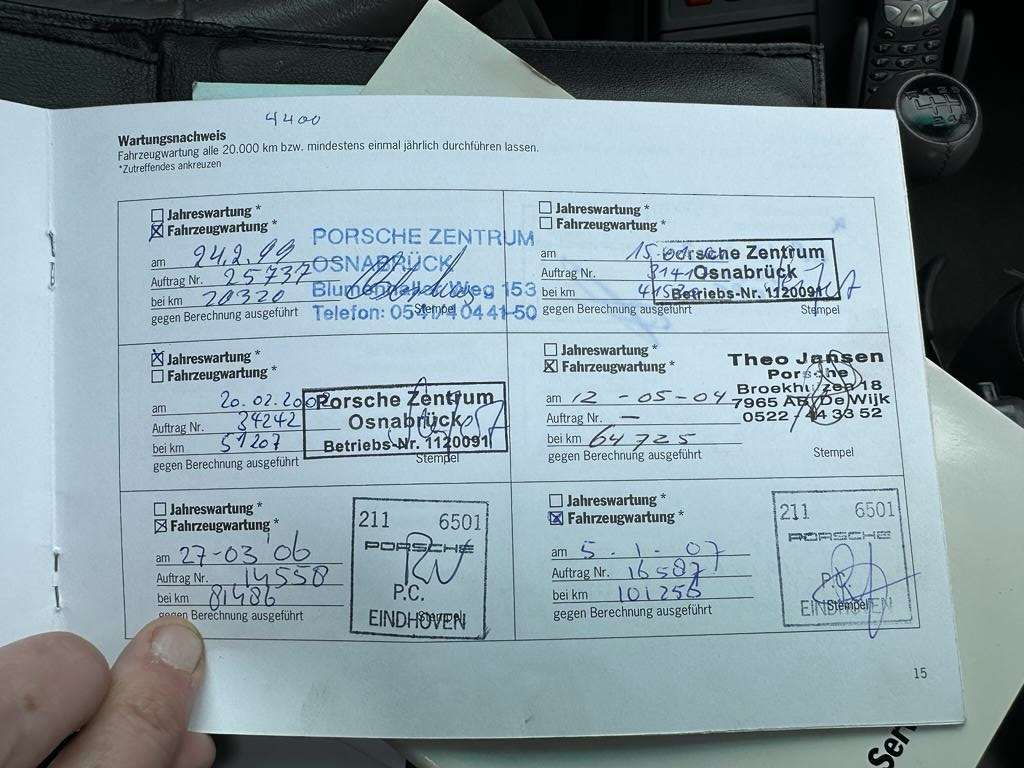 4400
Wartungsnachweis
Fahrzeugwartung alle 20.000 km bzw. mindestens einmal jährlich durchführen lassen.
*Zutreffendes ankreuzen
Jahreswartung *
Fahrzeugwartung *
am 24.2.99
Auftrag Nr. 25737
bei km 20320
gegen Berechnung ausgeführt
Stempel
PORSCHE ZENTRUM
OSNABRÜCK
Blumenhaller Weg 153
Telefon: 0541/40441-50
Jahreswartung *
Fahrzeugwartung *
am
Auftrag Nr.
bei km
gegen Berechnung ausgeführt
Stempel
Porsche Zentrum
Osnabrück
Betriebs-Nr. 1120091
Jahreswartung *
Fahrzeugwartung *
am 20.02.
Auftrag Nr. 34242
bei km 51207
gegen Berechnung ausgeführt
Stempel
Porsche Zentrum
Osnabrück
Betriebs-Nr. 1120091
Jahreswartung *
Fahrzeugwartung *
am 12-05-04
Auftrag Nr. —
bei km 64725
gegen Berechnung ausgeführt
Stempel
Theo Jansen
Porsche
Broekhuizen 18
7965 AB De Wijk
0522 - 44 33 52
Jahreswartung *
Fahrzeugwartung *
am 27-03'06
Auftrag Nr. 14558
bei km 81486
gegen Berechnung ausgeführt
Stempel
211 6501
PORSCHE
P.C.
EINDHOVEN
Jahreswartung *
Fahrzeugwartung *
am 5-1-07
Auftrag Nr. 16587
bei km 101256
gegen Berechnung ausgeführt
Stempel
211 6501
PORSCHE
P.C.
EINDHOVEN
15